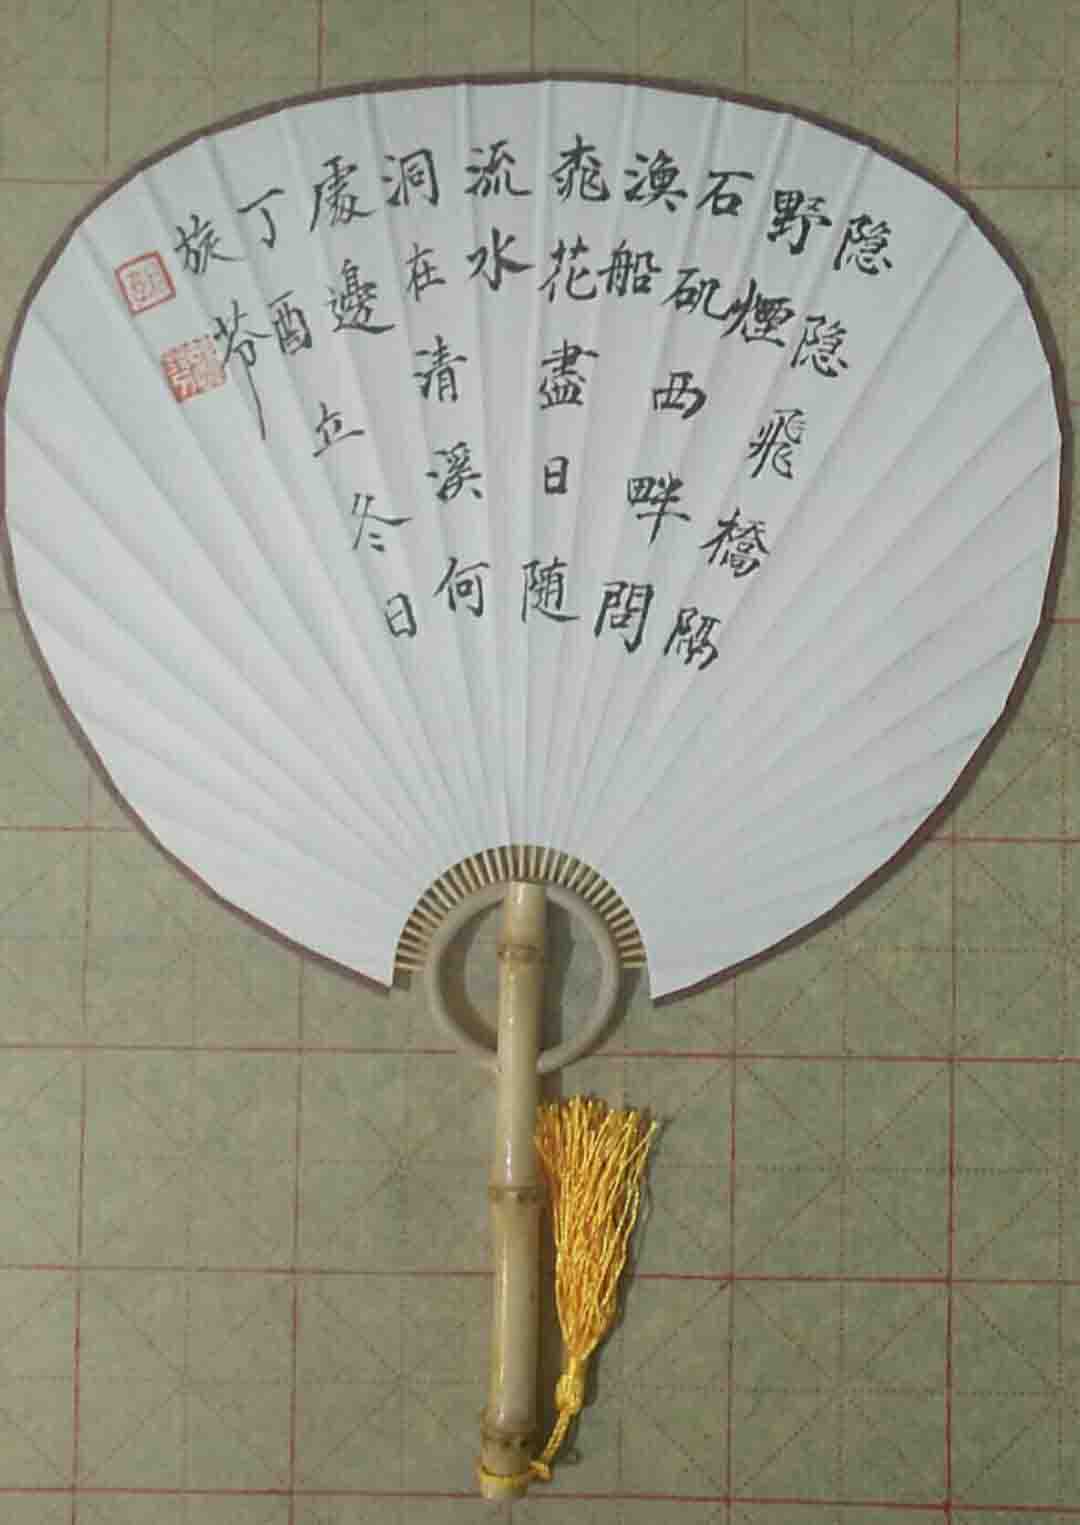 隐隐飛橋隔
野煙
石矶西畔問
渔船
桃花盡日随
流水
洞在清溪何
處邊
丁酉立冬日
芬